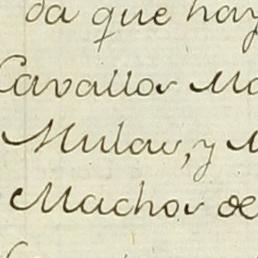 da que hay
Cavallos Ma
Mulas, y M
Machos de